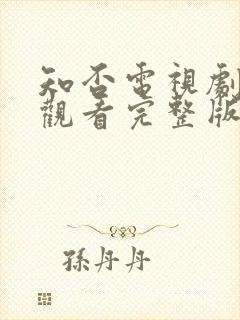 知否電視劇
觀看完整版
孫丹丹